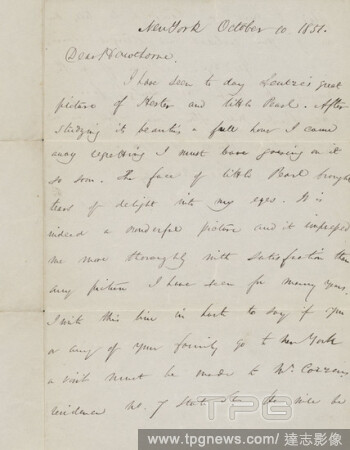 New York October 10 1851.
Dear Hawthorne.
I have seen to day Leutze's great
picture of Hester and little Pearl. After
studying its beauties a full hour I came
away regretting I must leave gazing on it
so soon. The face of little Pearl brought
tears of delight into my eyes. It is
indeed a wonderful picture and it impressed
me more thoroughly with satisfaction than
any picture I have seen for many years.
I write this line in haste to say if you
or any of your family go to New York
a visit must be made to Mr. Cozzens
residence No. 7 State St. He will be
TPG
www.tpgnews.com / 達志影像